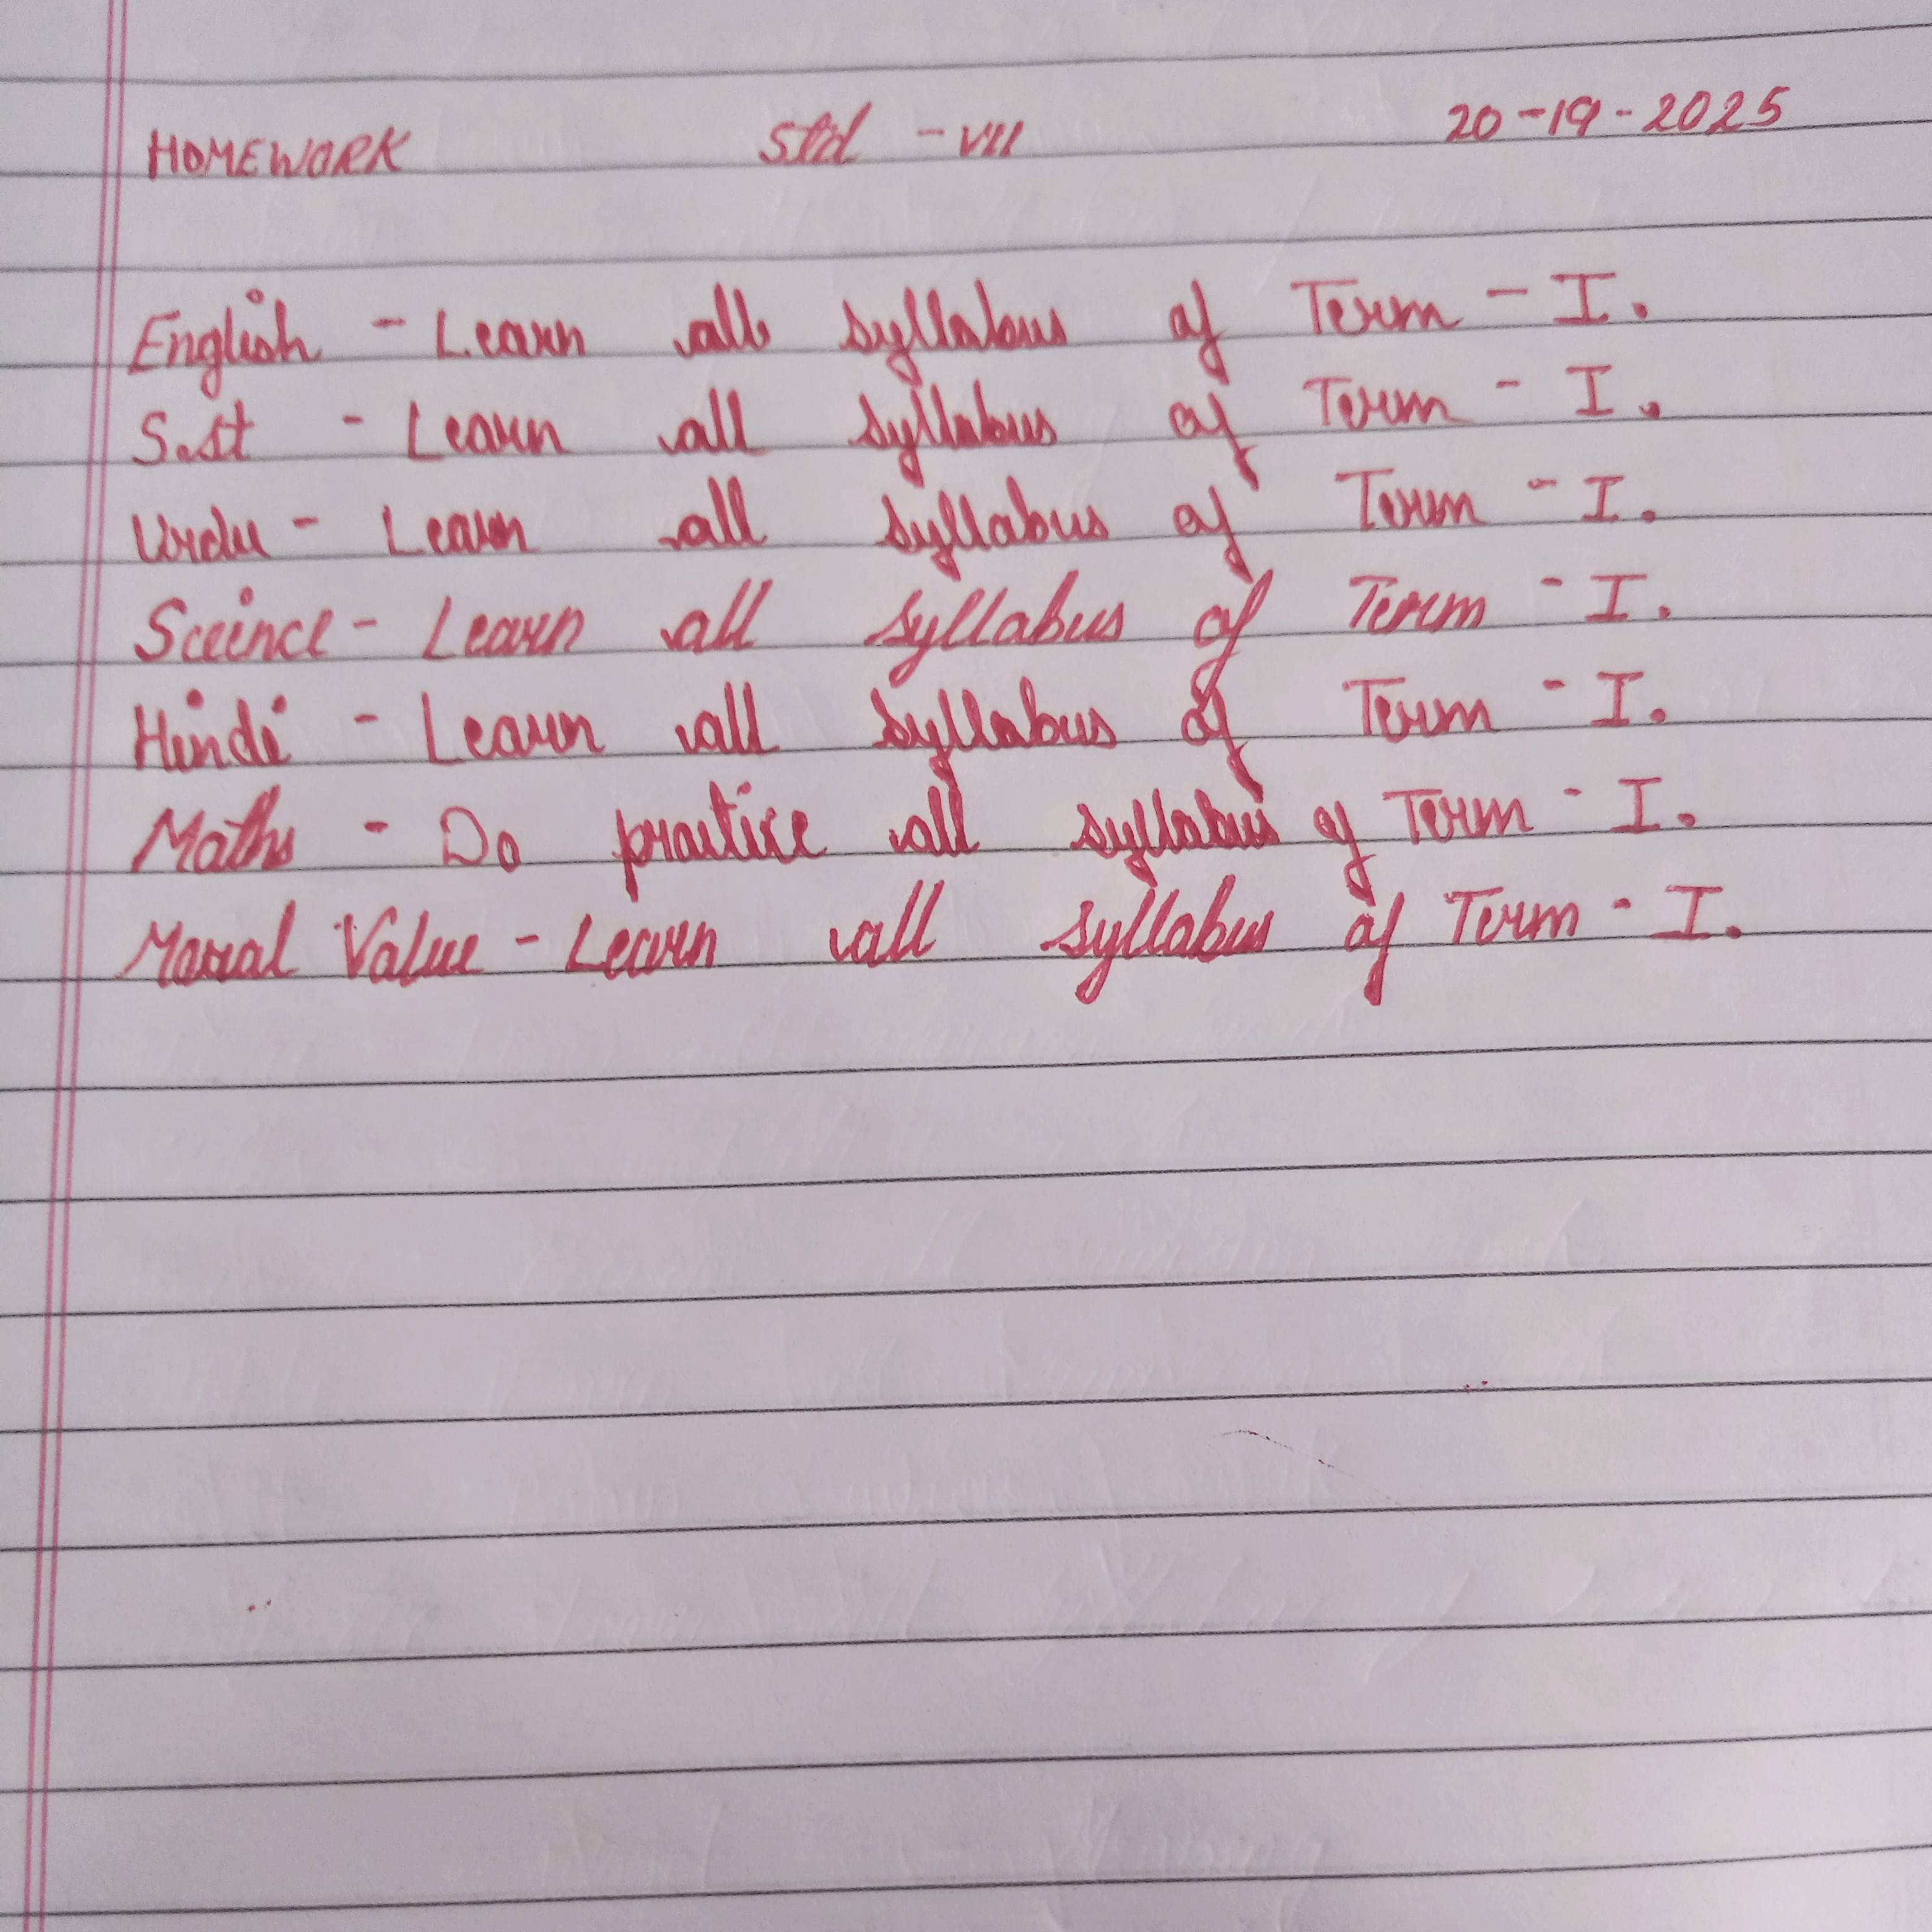 HOMEWORK Std - VII 20-19-2025
English - Learn all syllabus of Term - I.
S.st - Learn all syllabus of Term - I.
Urdu - Learn all syllabus of Term - I.
Sceince - Learn all syllabus of Term - I.
Hindi - Learn all syllabus of Term - I.
Maths - Do practice all syllabus of Term - I.
Moral Value - Learn all syllabus of Term - I.